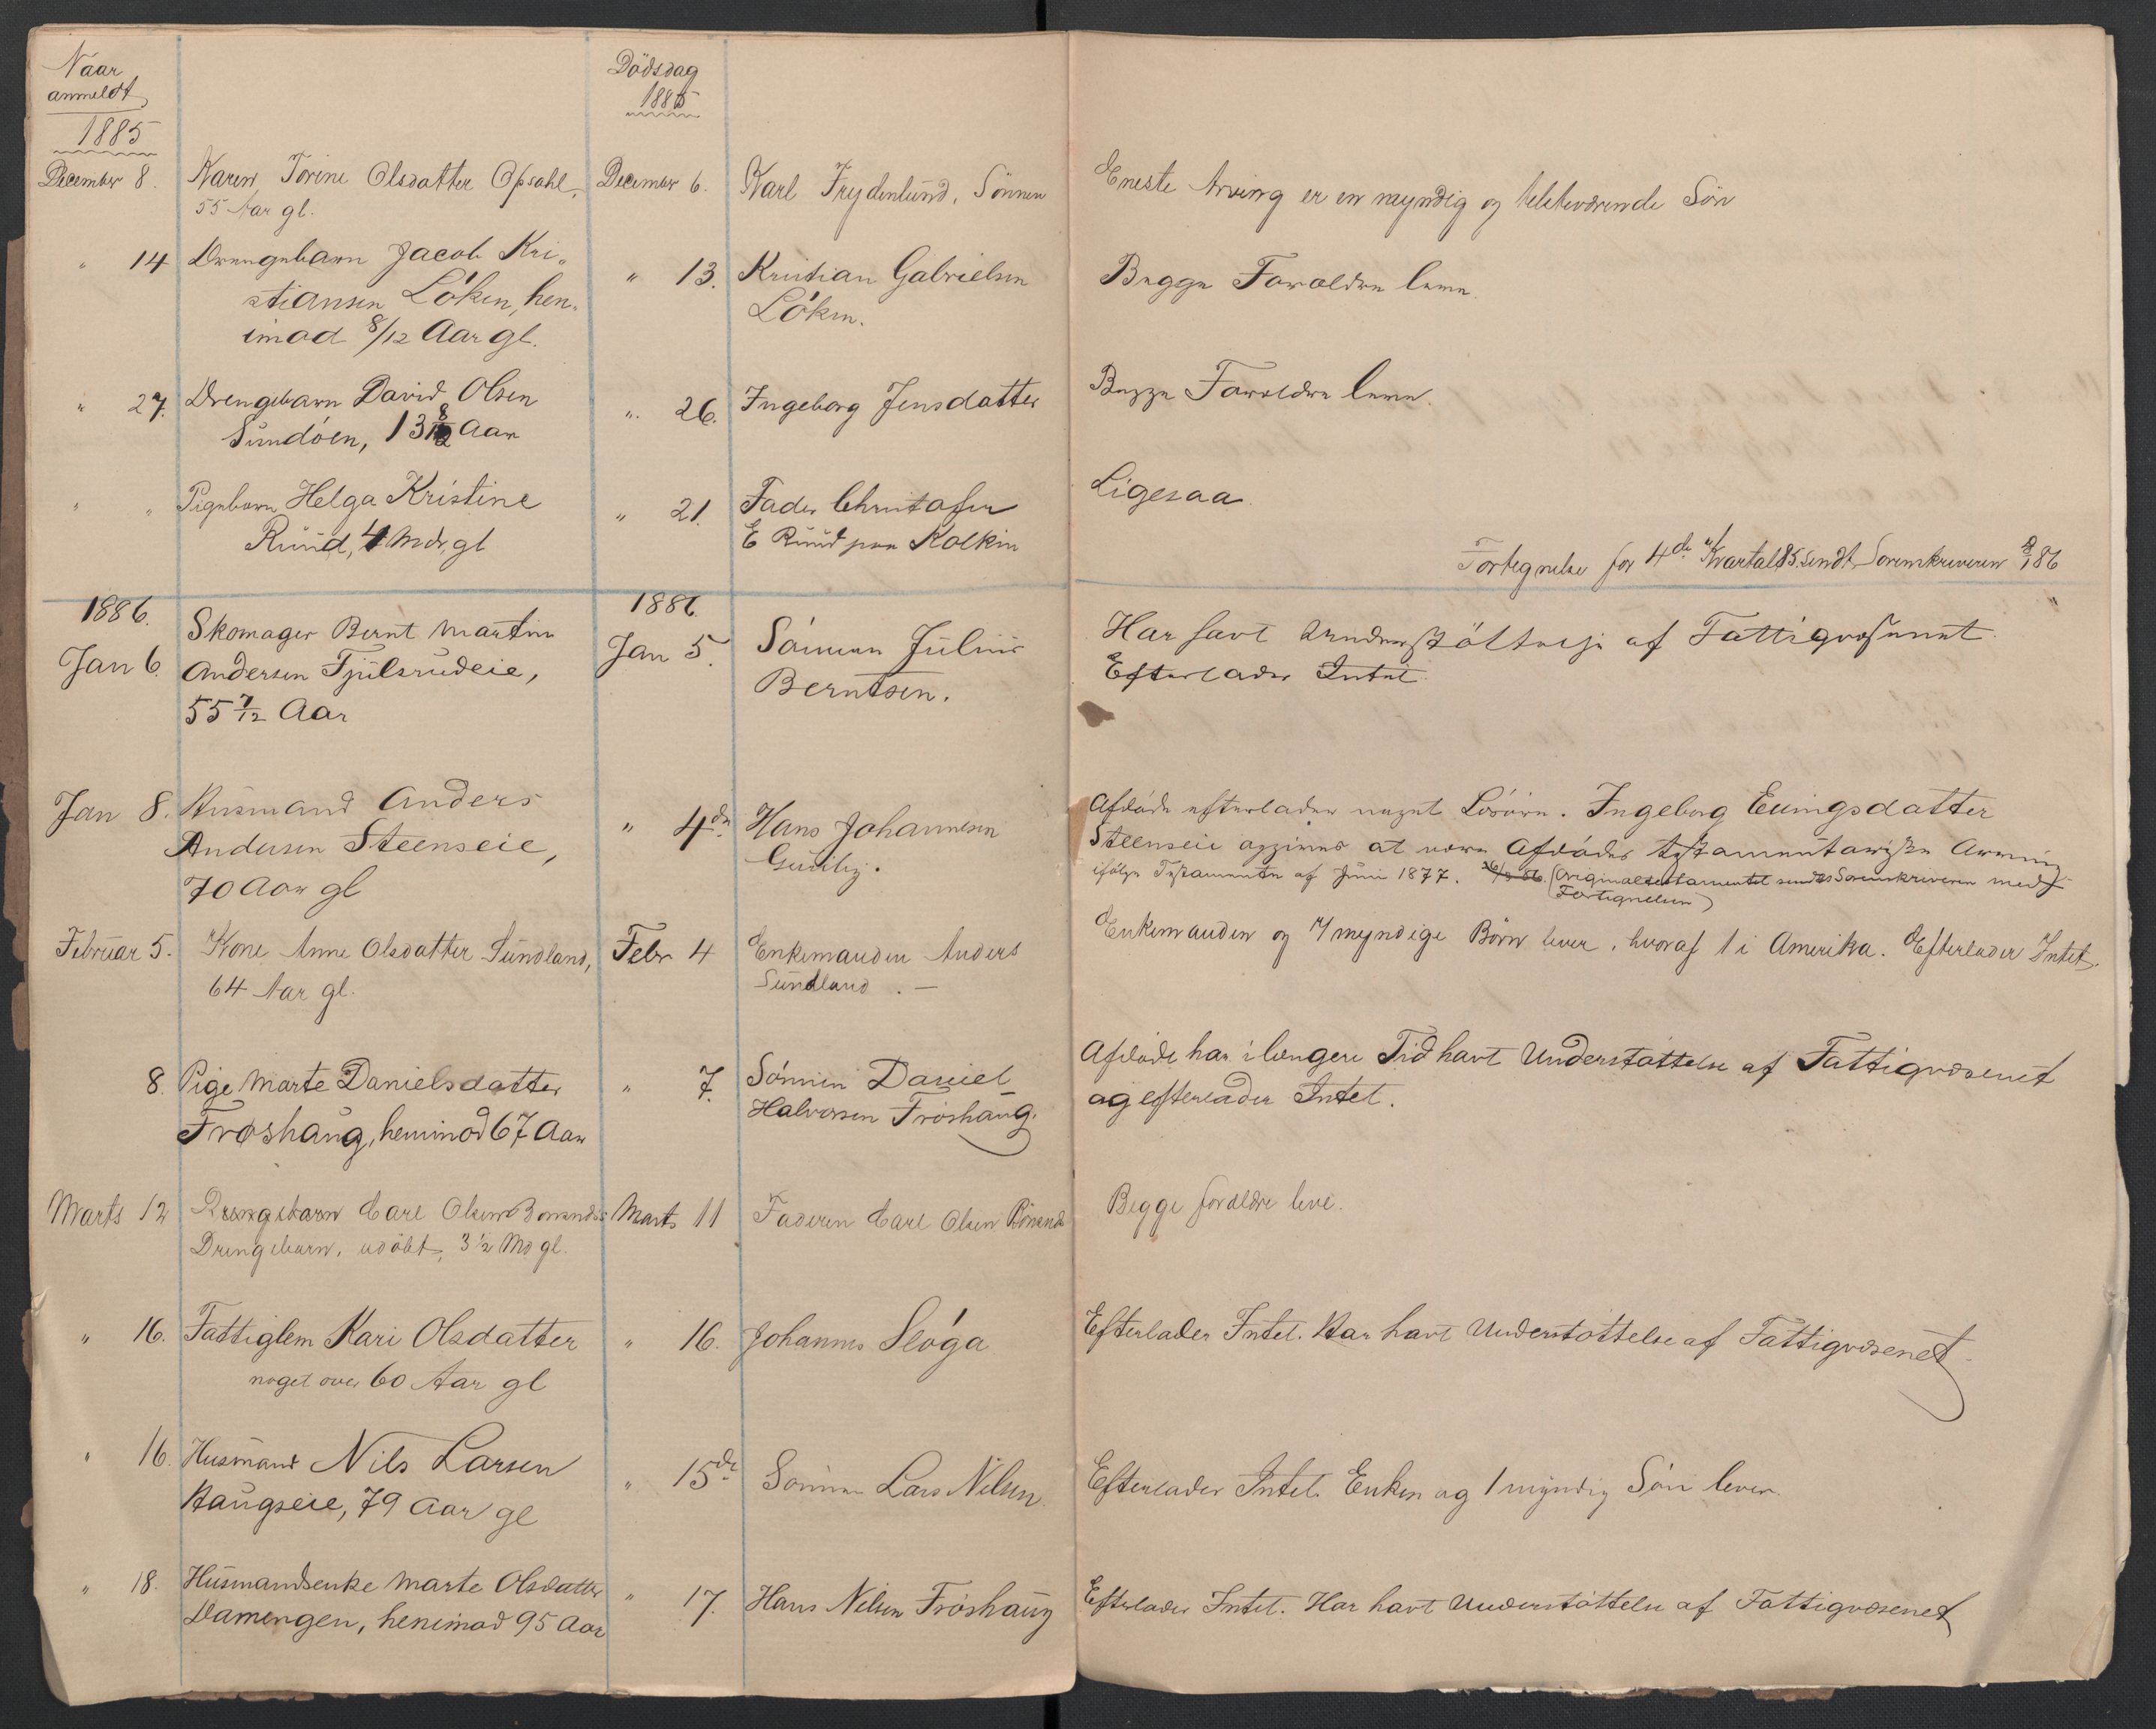 Naar
anmeldt
1885
Dödsdag
1885
December 8. Karen Torine Olsdatter Opsahl, December 6. Karl Frydenlund, Sönnen Eneste Arving er en myndig og tilstedeværende Sön
55 Aar gl.
" 14 Drengebarn Jacob Kri- " 13. Kristian Gabrielsen Begge Forældre leve.
stiansen Löken, hen- Löken.
imod 8/12 Aar gl.
" 27. Drengebarn David Olsen " 26. Ingeborg Jensdatter Begge Forældre leve.
Sundöen, 13 8/12 Aar
" " Pigebarn Helga Kristine " 21. Fader Christofer Ligesaa.
Ruud, 4 Mdr. gl E Ruud paa Kolkin
Fortegnelse for 4de Kvartal 85. sendt Sorenskriveren /1 86
1886. 1886.
Jan 6. Skomager Bernt Martin Jan 5. Sönnen Julius Har havt Understöttelse af Fattigvæsenet.
Andersen Fjulsrudeie, Berntsen. Efterlader Intet.
55 7/12 Aar
Jan 8. Husmand Anders " 4de Hans Johannesen Afdöde efterlader noget Lösöre. Ingeborg Evingsdatter
Andersen Steenseie, Steenseie opgives at være Afdödes testamentariske Arving
70 Aar gl ifölge Testamente af Juni 1877. (Originaltestamentet sendes Sorenskriveren med
Fortegnelsen)
Februar 5. Kone Anne Olsdatter Sundland, Febr 4 Enkemanden Anders Enkemanden og 4 myndige Börn lever, hvoraf 1 i Amerika. Efterlader Intet.
64 Aar gl. Sundland. —
8. Pige Marte Danielsdatter " 7. Sönnen Daniel Afdöde har i længere Tid havt Understöttelse af Fattigvæsenet
Fröshaug, henimod 67 Aar Halvorsen Fröshaug. og efterlader Intet.
Marts 12 Drengebarn Carl Olsen Marts 11 Faderen Carl Olsen Begge forældre leve.
Drengebarn, udöbt, 3 1/2 Md gl.
" 16. Fattiglem Kari Olsdatter " 16. Johannes Slöga Efterlader Intet. Har havt Understöttelse af Fattigvæsenet.
noget over 60 Aar gl
" 16. Husmand Nils Larsen " 15de Sönnen Lars Nilsen. Efterlader Intet. Enken og 1 myndig Sön lever.
Haugseie, 79 Aar gl
" 18. Husmandsenke Marte Olsdatter " 17. Hans Nilsen Fröshaug Efterlader Intet. Har havt Understöttelse af Fattigvæsenet
Damengen, henimod 95 Aar